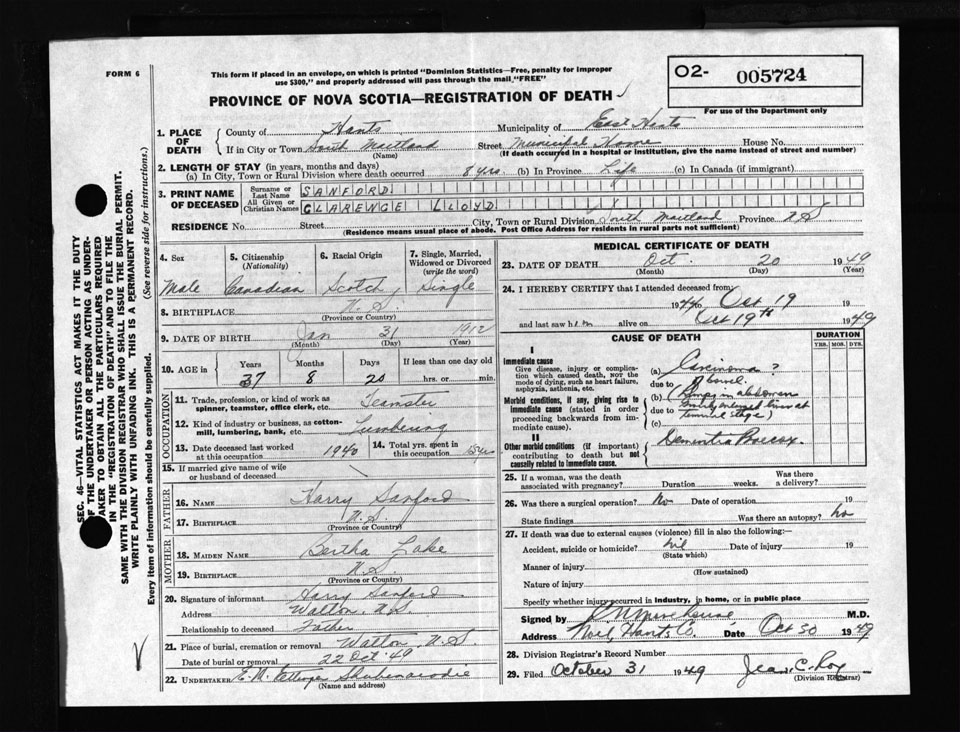 FORM 6
This form if placed in an envelope, on which is printed "Dominion Statistics—Free, penalty for improper
use $300," and properly addressed will pass through the mail "FREE"
O2- 005724
For use of the Department only
PROVINCE OF NOVA SCOTIA—REGISTRATION OF DEATH
1. PLACE OF DEATH
County of Hants Municipality of East Hants
If in City or Town South Maitland Street Municipal Home House No.
(Name) (If death occurred in a hospital or institution, give the name instead of street and number)
2. LENGTH OF STAY (in years, months and days)
(a) In City, Town or Rural Division where death occurred 8 yrs. (b) In Province Life (c) In Canada (if immigrant)
3. PRINT NAME OF DECEASED
Surname or Last Name SANFORD
All Given or Christian Names CLARENCE LLOYD
RESIDENCE No. Street City, Town or Rural Division South Maitland Province N S
(Residence means usual place of abode. Post Office Address for residents in rural parts not sufficient)
4. Sex 5. Citizenship (Nationality) 6. Racial Origin 7. Single, Married, Widowed or Divorced (write the word)
Male Canadian Scotch Single
8. BIRTHPLACE N.S.
(Province or Country)
9. DATE OF BIRTH Jan 31 1912
(Month) (Day) (Year)
10. AGE in Years Months Days If less than one day old
37 8 20 hrs. or min.
OCCUPATION
11. Trade, profession or kind of work as
spinner, teamster, office clerk, etc. Teamster
12. Kind of industry or business, as cotton-
mill, lumbering, bank, etc. Lumbering
13. Date deceased last worked at this occupation 1940 14. Total yrs. spent in this occupation
15. If married give name of wife
or husband of deceased
FATHER
16. NAME Harry Sanford
17. BIRTHPLACE N.S.
(Province or Country)
MOTHER
18. MAIDEN NAME Bertha Lake
19. BIRTHPLACE N.S.
(Province or Country)
20. Signature of informant Harry Sanford
Address Walton, N.S.
Relationship to deceased Father
21. Place of burial, cremation or removal Walton N.S
Date of burial or removal 22 Oct '49
22. UNDERTAKER E. N. Ettinger Shubenacadie
(Name and address)
MEDICAL CERTIFICATE OF DEATH
23. DATE OF DEATH Oct. 20 1949
(Month) (Day) (Year)
24. I HEREBY CERTIFY that I attended deceased from
Oct 19 19
and last saw him alive on Oct 19th 1949
CAUSE OF DEATH
DURATION
YRS. MOS. DYS.
I
Immediate cause
Give disease, injury or complica-
tion which caused death, NOT the
mode of dying, such as heart failure,
asphyxia, asthenia, etc.
(a) Carcinoma ?
due to of bowel.
Morbid conditions, if any, giving rise to
immediate cause (stated in order
proceeding backwards from im-
mediate cause).
(b) (lumps in abdomen
due to enlarged liver at
terminal stage)
(c)
II
Other morbid conditions (if important)
contributing to death but not
causally related to immediate cause.
Dementia Praecox.
25. If a woman, was the death
associated with pregnancy? Duration weeks. Was there a delivery?
26. Was there a surgical operation? No Date of operation 19
State findings Was there an autopsy? No
27. If death was due to external causes (violence) fill in also the following:—
Accident, suicide or homicide? Nil Date of injury 19
(State which)
Manner of injury
(How sustained)
Nature of injury
Specify whether injury occurred in industry, in home, or in public place
Signed by M.D.
Address Noel, Hants Co. Date Oct 30 1949
28. Division Registrar's Record Number
29. Filed October 31 1949 Jean C. Roy
(Division Registrar)
SEC. 46—VITAL STATISTICS ACT MAKES IT THE DUTY
OF THE UNDERTAKER OR PERSON ACTING AS UNDER-
TAKER TO OBTAIN ALL THE PARTICULARS REQUIRED
IN THE "REGISTRATION OF DEATH" AND TO FILE THE
SAME WITH THE DIVISION REGISTRAR WHO SHALL ISSUE THE BURIAL PERMIT.
WRITE PLAINLY WITH UNFADING INK. THIS IS A PERMANENT RECORD.
Every item of information should be carefully supplied. (See reverse side for instructions.)